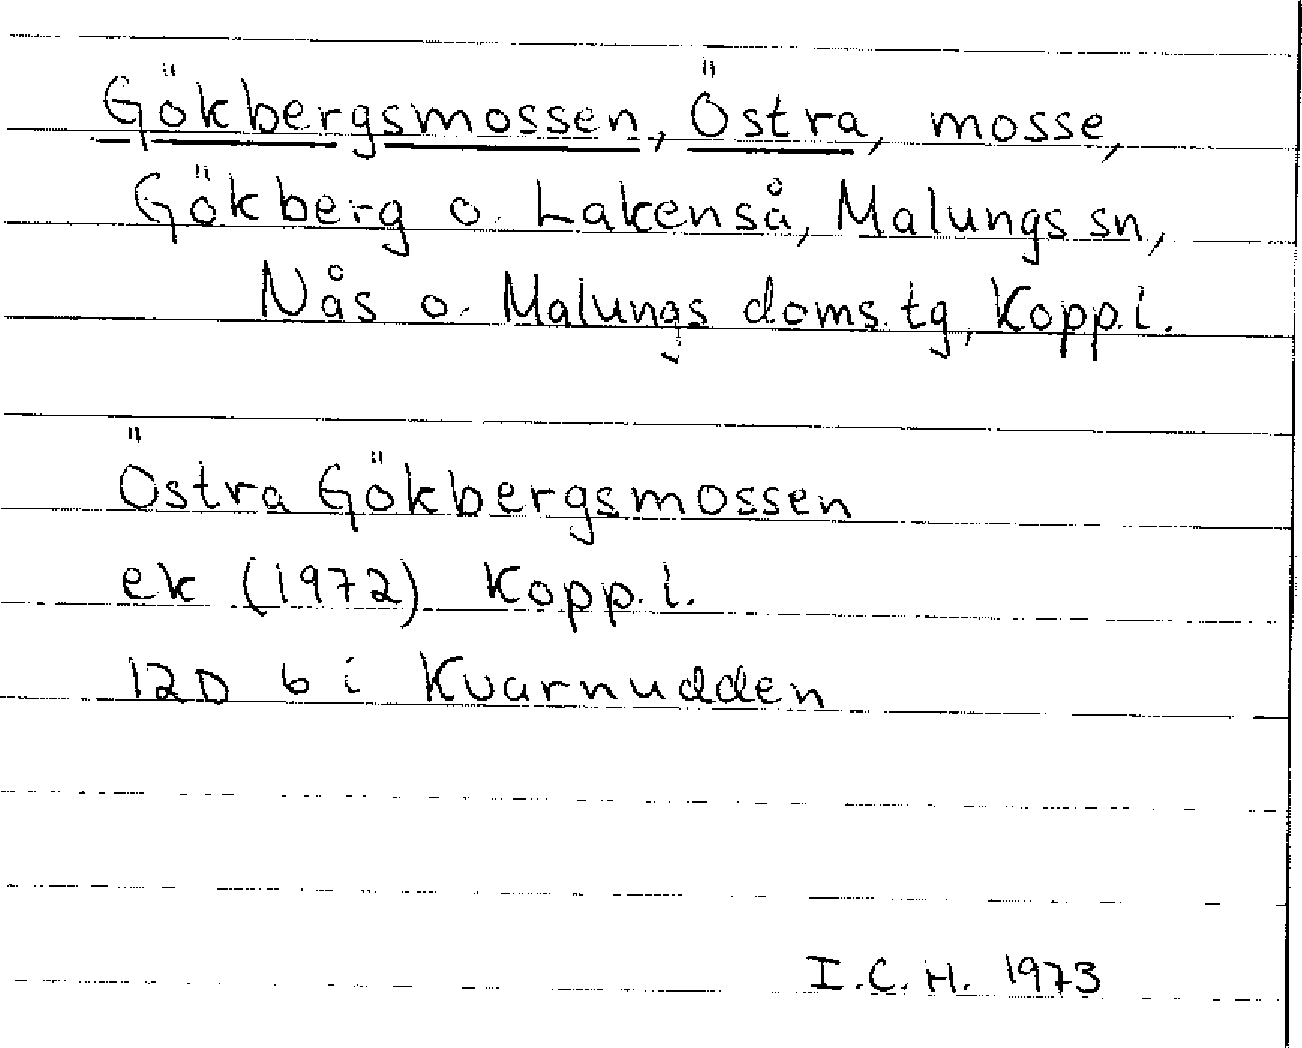 Gökbergsmossen, Östra, mosse,
Gökberg o. Lakenså, Malungs sn,
Nås o. Malungs doms. tg, Kopp. l.
Östra Gökbergsmossen
ek (1972) Kopp. l.
12D 6 i Kvarnudden
I.C.H. 1973